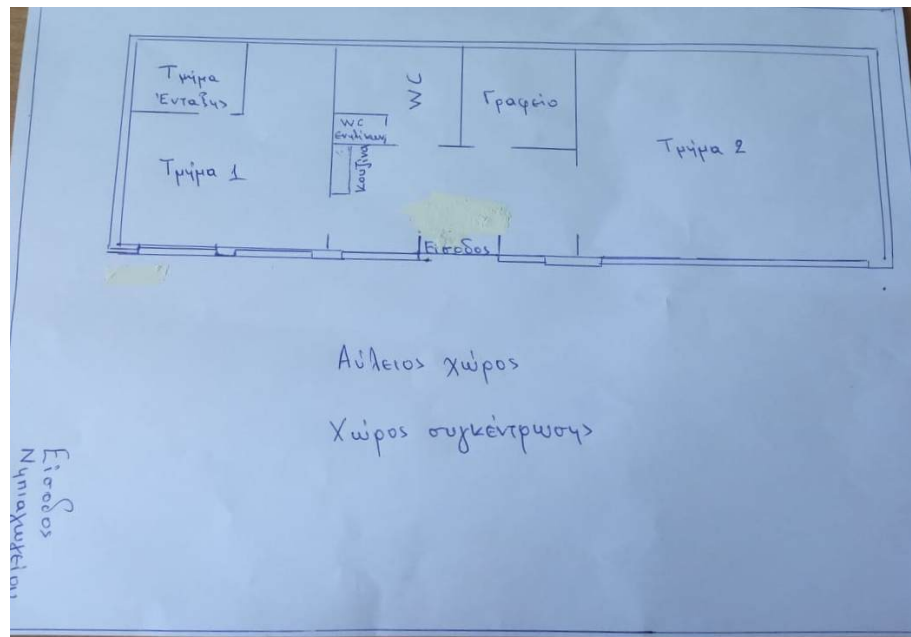 Τμήμα
Ένταξης
WC
Γραφείο
WC
ενηλίκων
Κουζίνα
Τμήμα 1
Τμήμα 2
Είσοδος
Αύλειος χώρος
Χώρος συγκέντρωσης
Είσοδος
Νηπιαγωγείου